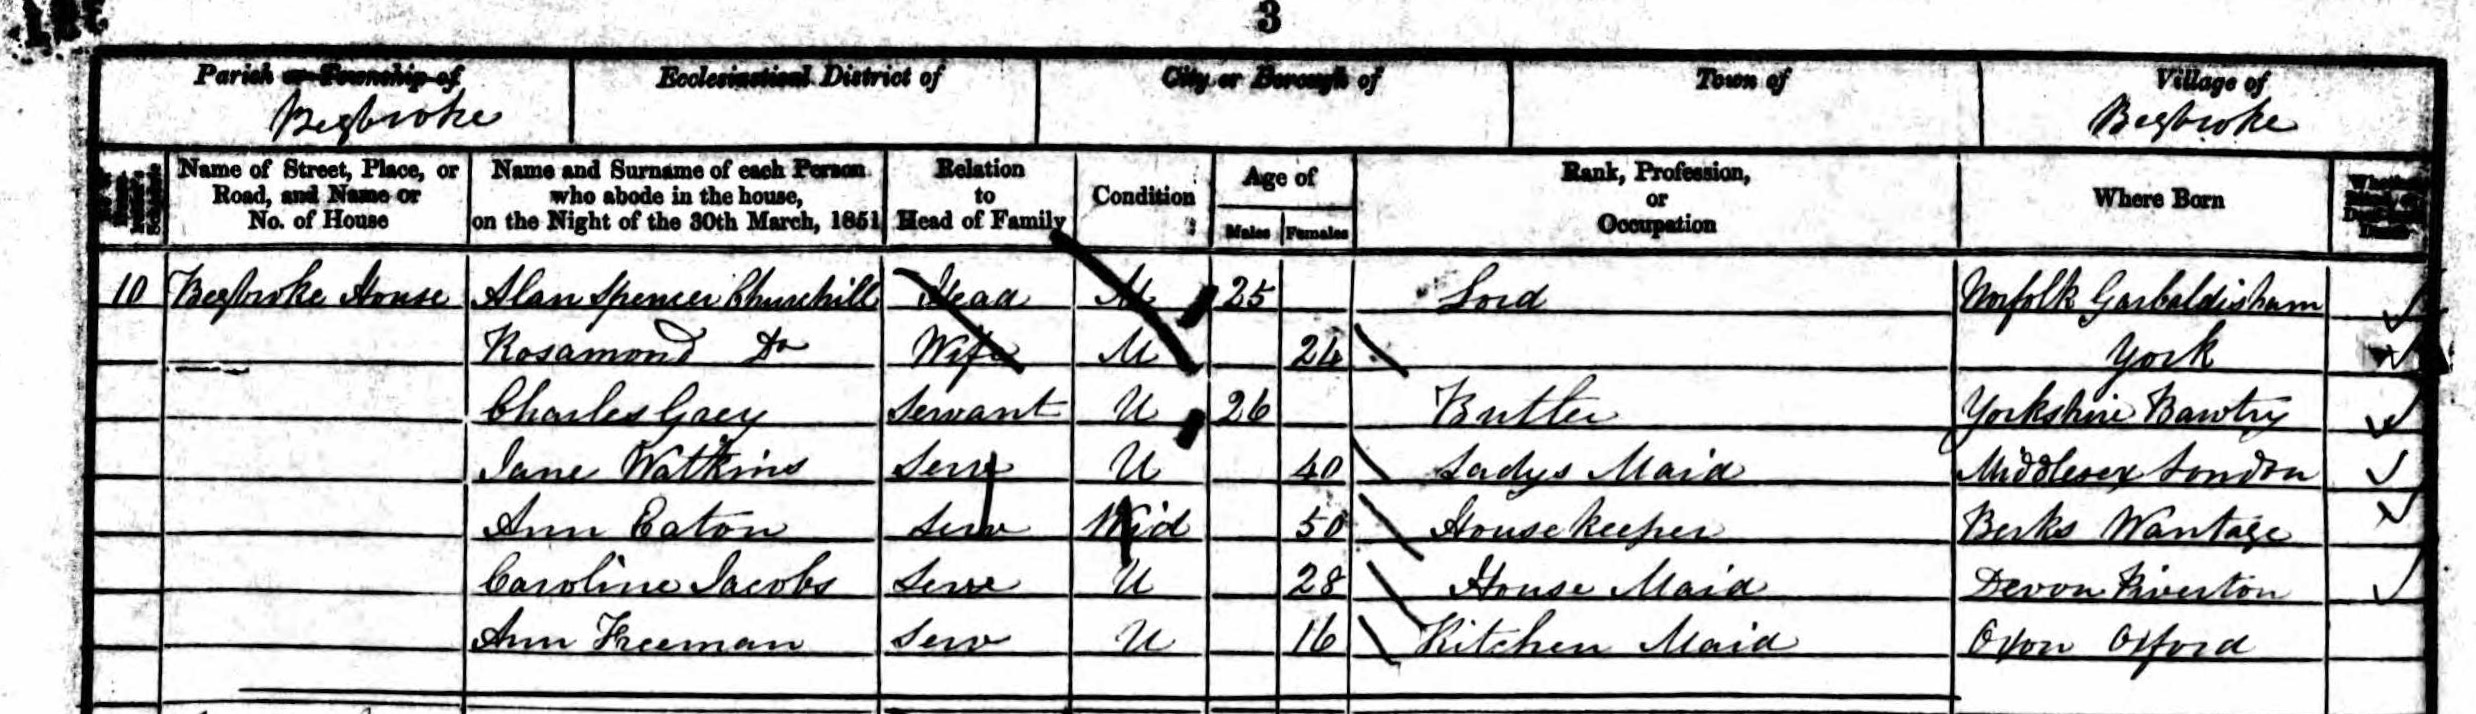 3
Parish or Township of
Begbroke
Ecclesiastical District of
City or Borough of
Town of
Village of
Begbroke
Name of Street, Place, or Road, and Name or No. of House
Name and Surname of each Person who abode in the house, on the Night of the 30th March, 1851
Relation to Head of Family
Condition
Age of
Males Females
Rank, Profession, or Occupation
Where Born
10 Begbroke House Alan Spencer Churchill Head M 25 Lord Norfolk Garbaldisham
Rosamond Do Wife M 24 York
Charles Grey Servant U 26 Butler Yorkshire Bawtry
Jane Watkins Serv U 40 Ladys Maid Middlesex London
Ann Eaton Serv Wid 50 Housekeeper Berks Wantage
Caroline Jacobs Serv U 28 House Maid Devon Tiverton
Ann Freeman Serv U 16 Kitchen Maid Oxon Oxford